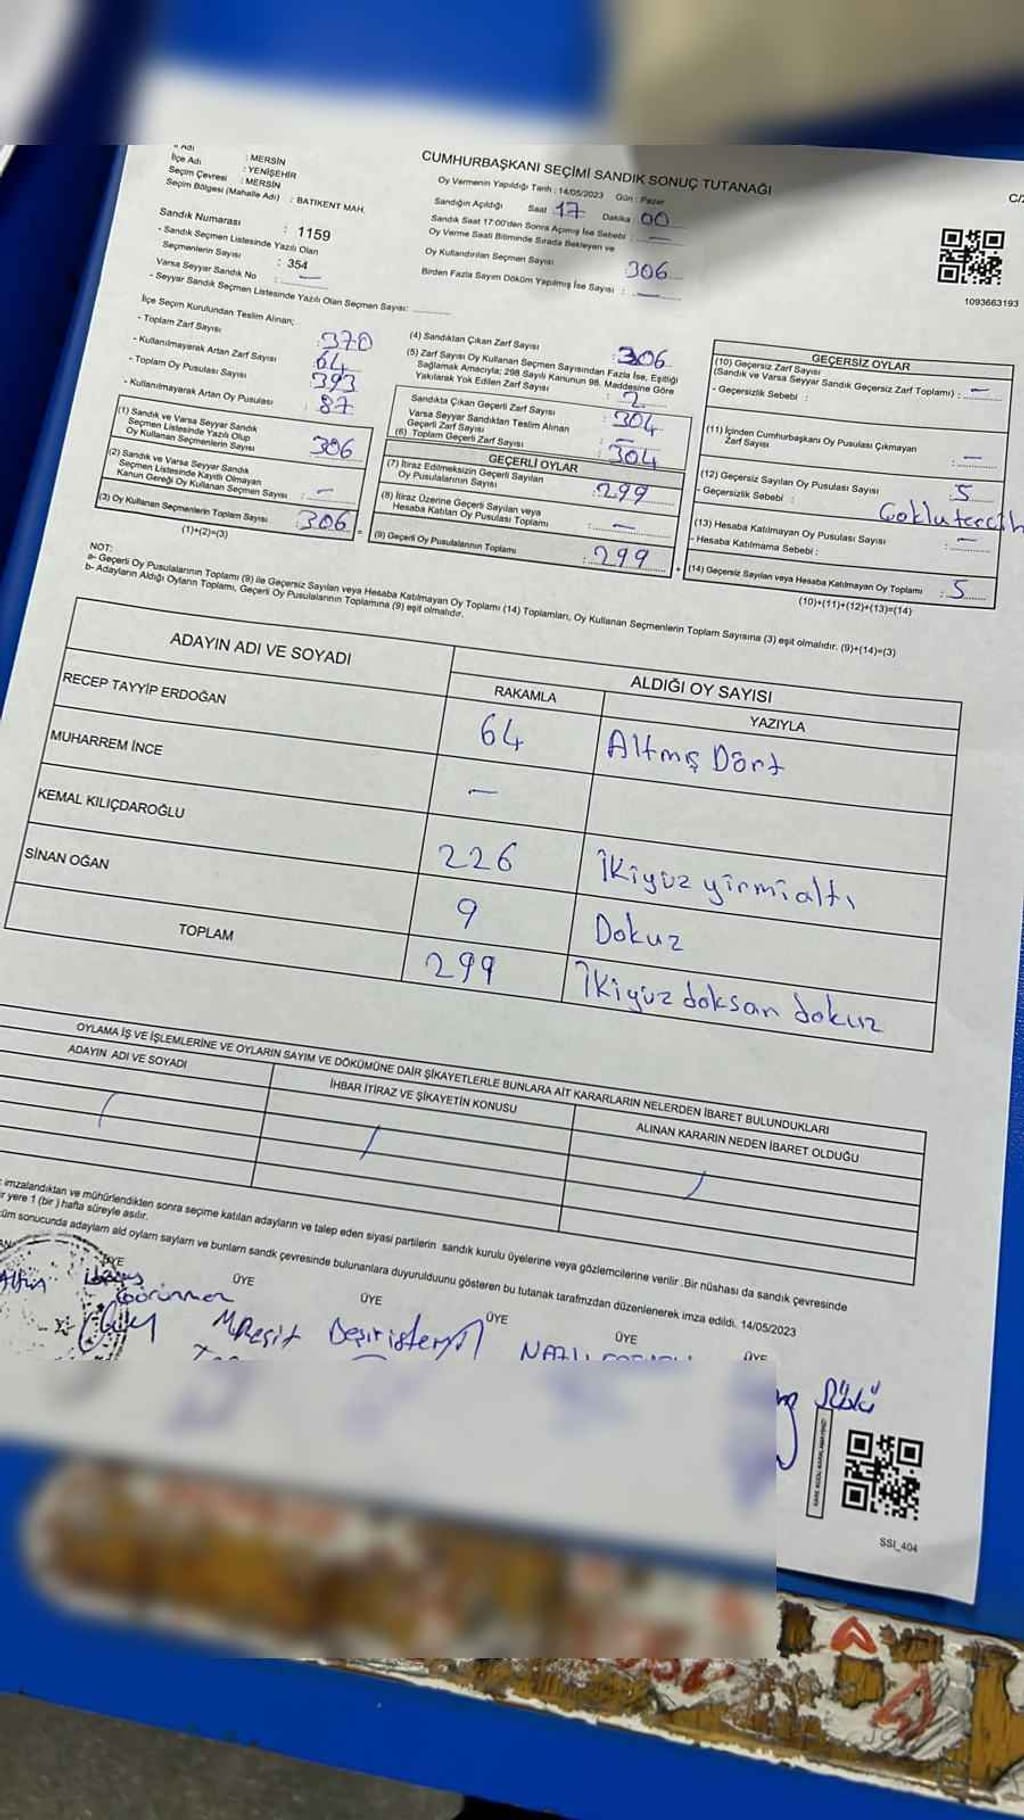 İlçe Adı : MERSİN
Seçim Çevresi : YENİŞEHİR
: MERSİN
Seçim Bölgesi (Mahalle Adı) : BATIKENT MAH.
Sandık Numarası : 1159
- Sandık Seçmen Listesinde Yazılı Olan
Seçmenlerin Sayısı : 354
Varsa Seyyar Sandık No : —
- Seyyar Sandık Seçmen Listesinde Yazılı Olan Seçmen Sayısı:
CUMHURBAŞKANI SEÇİMİ SANDIK SONUÇ TUTANAĞI
Oy Vermenin Yapıldığı Tarih : 14/05/2023 Gün : Pazar
Sandığın Açıldığı Saat 17 Dakika 00
Sandık Saat 17:00'den Sonra Açımış İse Sebebi : —
Oy Verme Saati Bitiminde Sırada Bekleyen ve
Oy Kullandırılan Seçmen Sayısı 306
Birden Fazla Sayım Döküm Yapılmış İse Sayısı : —
C/2
1093663193
İlçe Seçim Kurulundan Teslim Alınan;
- Toplam Zarf Sayısı : 370
- Kullanılmayarak Artan Zarf Sayısı 64
- Toplam Oy Pusulası Sayısı 393
- Kullanılmayarak Artan Oy Pusulası : 87
(1) Sandık ve Varsa Seyyar Sandık
Seçmen Listesinde Yazılı Olup
Oy Kullanan Seçmenlerin Sayısı 306
(2) Sandık ve Varsa Seyyar Sandık
Seçmen Listesinde Kayıtlı Olmayan
Kanun Gereği Oy Kullanan Seçmen Sayısı : —
(3) Oy Kullanan Seçmenlerin Toplam Sayısı : 306
(1)+(2)=(3)
(4) Sandıktan Çıkan Zarf Sayısı : 306
(5) Zarf Sayısı Oy Kullanan Seçmen Sayısından Fazla İse, Eşitliği
Sağlamak Amacıyla; 298 Sayılı Kanunun 98. Maddesine Göre
Yakılarak Yok Edilen Zarf Sayısı : 2
Sandıkta Çıkan Geçerli Zarf Sayısı : 304
Varsa Seyyar Sandıktan Teslim Alınan
Geçerli Zarf Sayısı : —
(6) Toplam Geçerli Zarf Sayısı : 304
GEÇERLİ OYLAR
(7) İtiraz Edilmeksizin Geçerli Sayılan
Oy Pusulalarının Sayısı : 299
(8) İtiraz Üzerine Geçerli Sayılan veya
Hesaba Katılan Oy Pusulası Toplamı : —
(9) Geçerli Oy Pusulalarının Toplamı : 299
GEÇERSİZ OYLAR
(10) Geçersiz Zarf Sayısı
(Sandık ve Varsa Seyyar Sandık Geçersiz Zarf Toplamı) : —
- Geçersizlik Sebebi :
(11) İçinden Cumhurbaşkanı Oy Pusulası Çıkmayan
Zarf Sayısı : —
(12) Geçersiz Sayılan Oy Pusulası Sayısı : 5
- Geçersizlik Sebebi : Çoklu tercih
(13) Hesaba Katılmayan Oy Pusulası Sayısı : —
- Hesaba Katılmama Sebebi :
(14) Geçersiz Sayılan veya Hesaba Katılmayan Oy Toplamı : 5
(10)+(11)+(12)+(13)=(14)
NOT:
a- Geçerli Oy Pusulalarının Toplamı (9) ile Geçersiz Sayılan veya Hesaba Katılmayan Oy Toplamı (14) Toplamları, Oy Kullanan Seçmenlerin Toplam Sayısına (3) eşit olmalıdır. (9)+(14)=(3)
b- Adayların Aldığı Oyların Toplamı, Geçerli Oy Pusulalarının Toplamına (9) eşit olmalıdır.
ADAYIN ADI VE SOYADI ALDIĞI OY SAYISI
RAKAMLA YAZIYLA
RECEP TAYYİP ERDOĞAN 64 Altmış Dört
MUHARREM İNCE —
KEMAL KILIÇDAROĞLU 226 İkiyüz yirmi altı
SİNAN OĞAN 9 Dokuz
TOPLAM 299 İkiyüz doksan dokuz
OYLAMA İŞ VE İŞLEMLERİNE VE OYLARIN SAYIM VE DÖKÜMÜNE DAİR ŞİKAYETLERLE BUNLARA AİT KARARLARIN NELERDEN İBARET BULUNDUKLARI
ADAYIN ADI VE SOYADI İHBAR İTİRAZ VE ŞİKAYETİN KONUSU ALINAN KARARIN NEDEN İBARET OLDUĞU
imzalandıktan ve mühürlendikten sonra seçime katılan adayların ve talep eden siyasi partilerin sandık kurulu üyelerine veya gözlemcilerine verilir .Bir nüshası da sandık çevresinde
yere 1 (bir ) hafta süreyle asılır.
sonucunda adayların ald oyların sayların ve bunların sandk çevresinde bulunanlara duyurulduunu gösteren bu tutanak tarafmzdan düzenlenerek imza edildi. 14/05/2023
ÜYE ÜYE ÜYE ÜYE ÜYE ÜYE
Görünmez
M.Reşit
SSI_404